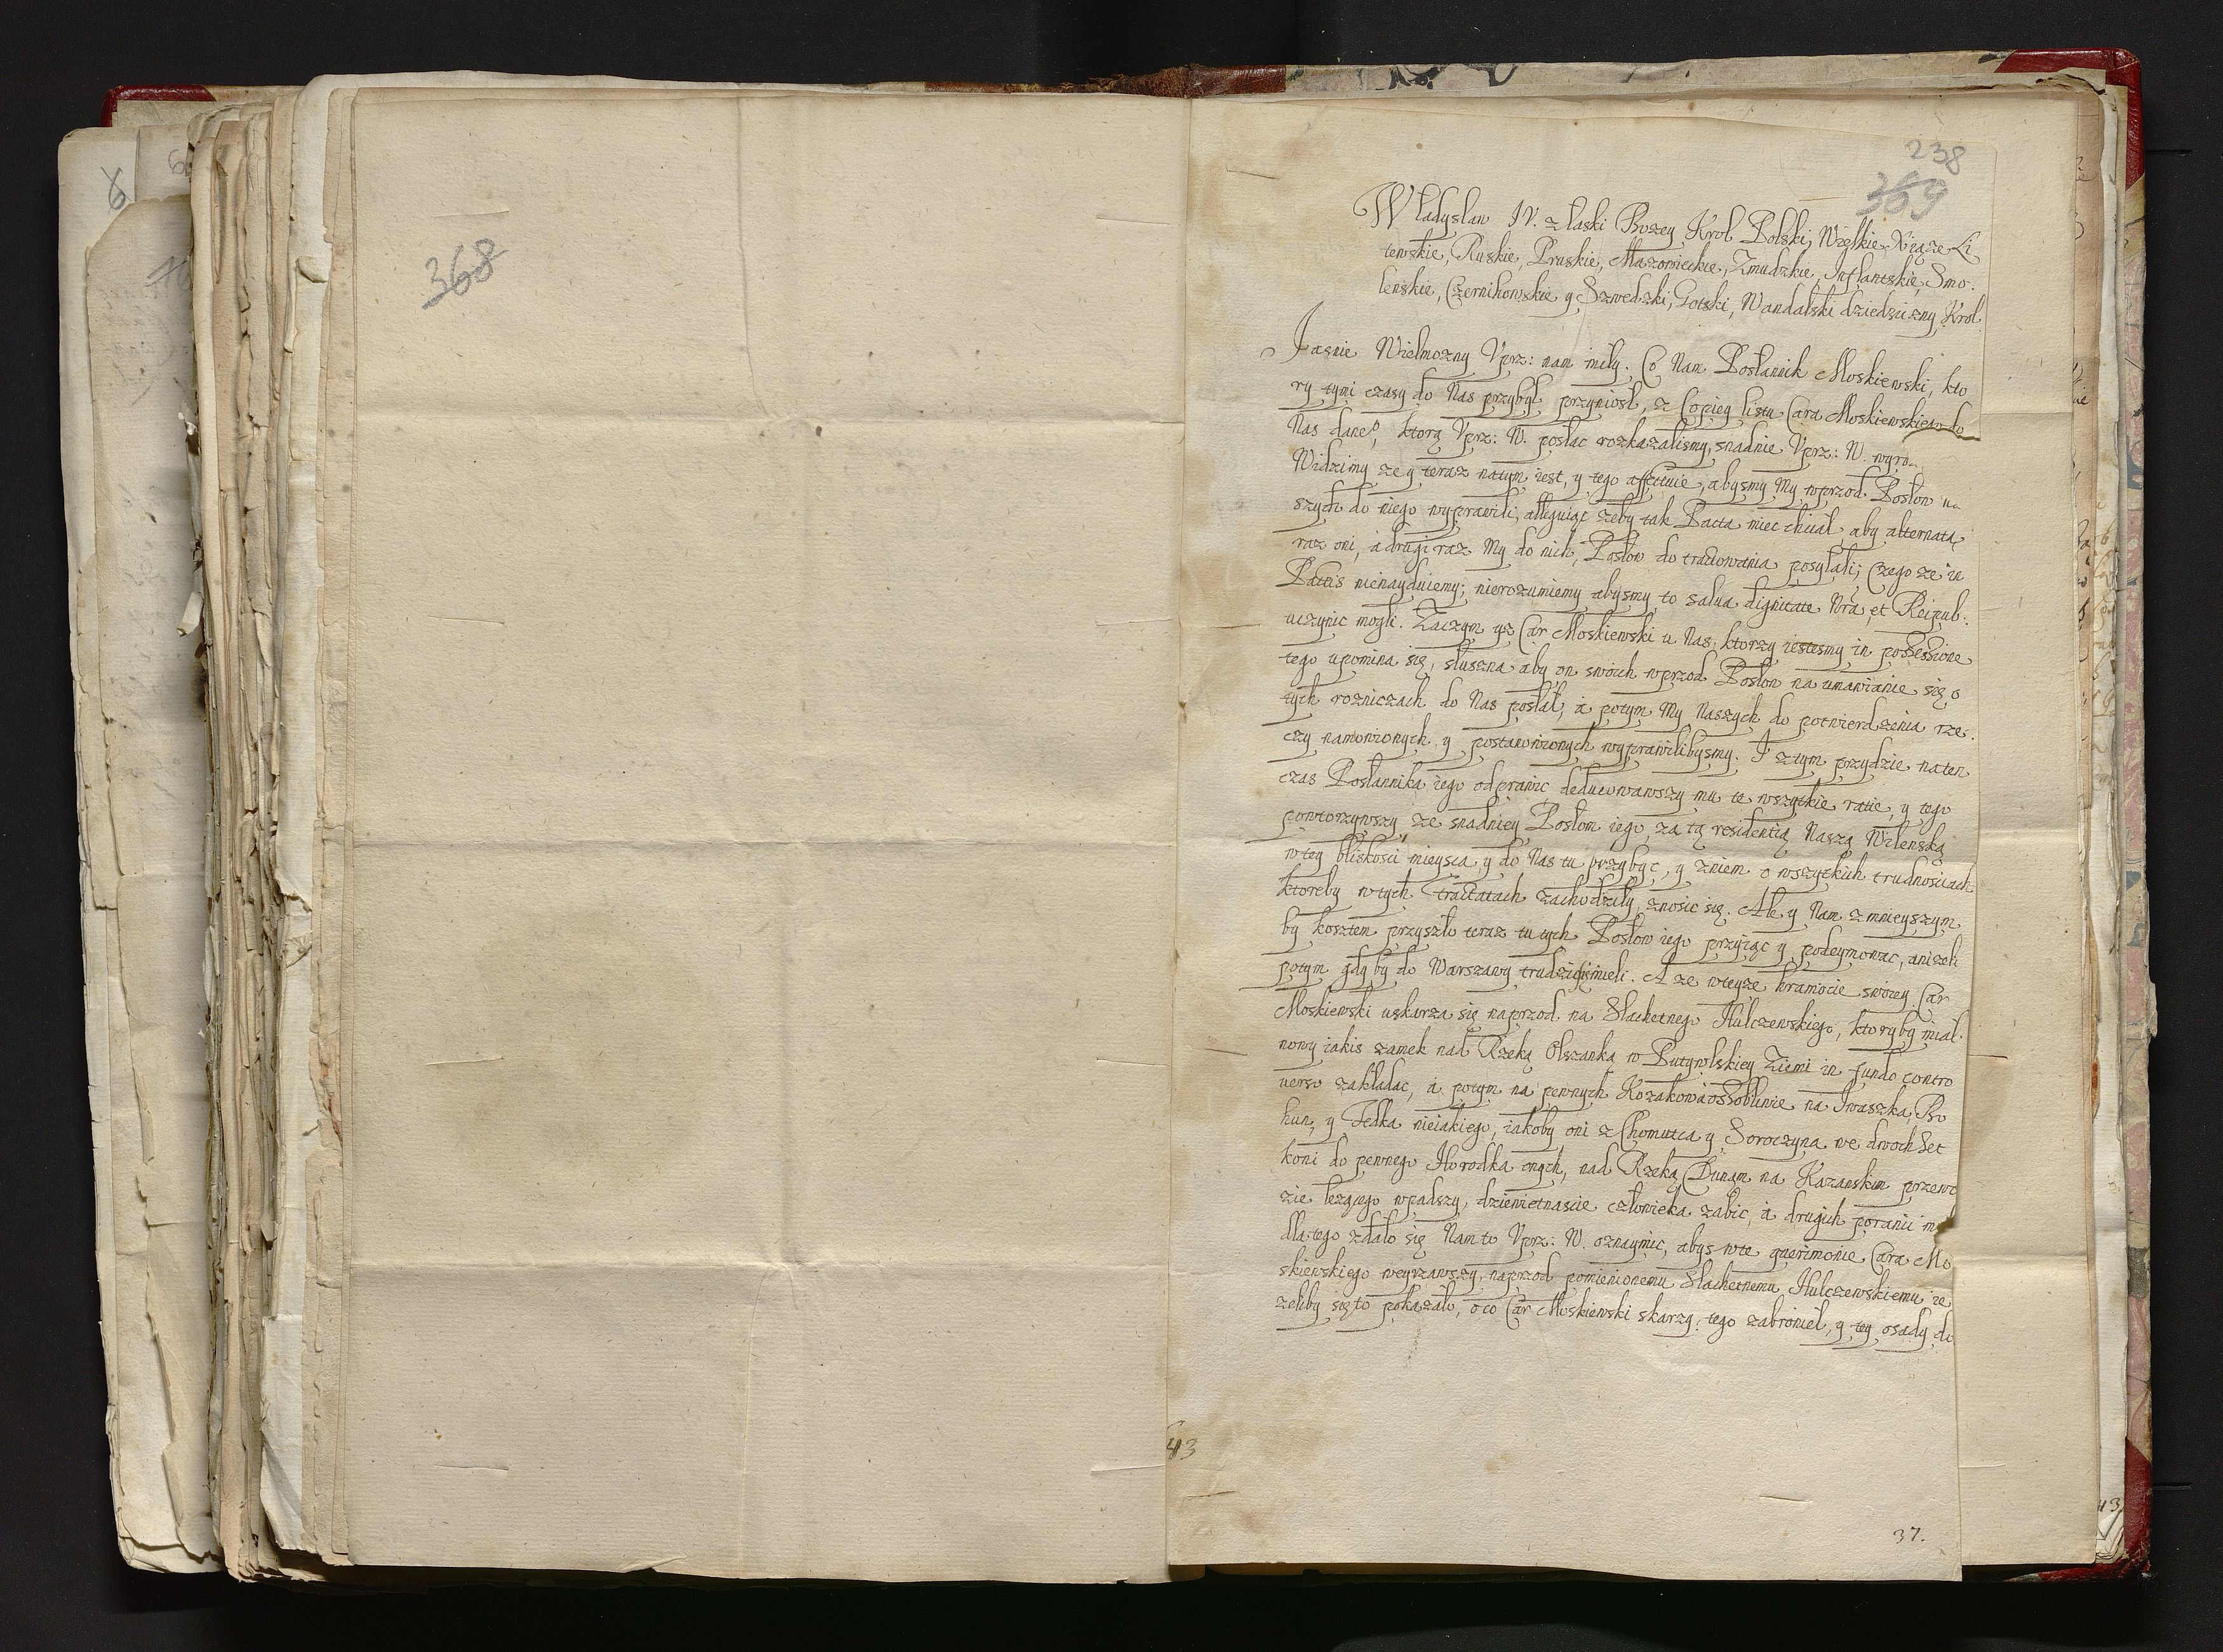 368
238
369
Władysław IV. z łaski Bozey Krol Polski, Wielkie Xiąze Li
tewskie, Ruskie, Pruskie, Mazowieckie, Zmudzkie, Inflantskie, Smo.
lenskie, Czernihowskie y Szwedzki, Gotski, Wandalski dziedziczny Krol.
Jasnie Wielmozny Vprz: nam miły. Co Nam Posłannik Moskiewski, kto
ry tymi czasy do Nas przybył przyniosł, z Copiey listu Cara Moskiewskiego do
Nas daneº, ktorą Vprz: W. posłac rozkazalismy, snadnie Vprz: W. wyro
Widzimy ze y teraz natym iest, y tego affectuie, abysmy My wprzod Posłow na
szych do niego wyprawili, alleguiąc zeby tak Pacta miec chciał, aby alternatą
raz oni, a drugi raz My do nich, Posłow do tractowania posyłali; Czego ze in
Pactis nienayduiemy; nierozumiemy abysmy to salua dignitate Nrã, et Reipub:
uczynic mogli. Zaczym yz Car Moskiewski u Nas, ktorzy iestesmy in possessione
tego upomina się, słuszna aby on swoich wprzod Posłow na umawianie się o
tych rozniczach do Nas posłał, a potym My Naszych do potwierdzenia rze.
czy namowionych y postanowionych wyprawilibysmy. I z tym przydzie na ten
czas Posłannika iego odprawic deducowawszy mu te wszytkie ratie, y tego
powtorzywszy ze snadniey Posłom iego za tą residentią Naszą Wilenską
w tey bliskosci mieysca y do Nas tu przybyc, y zniem o wszytkich trudnosciach
ktoreby w tych Tractatach zachodziły, znosic się. Ale y Nam z mnieyszym
by kosztem przyszło teraz tu tych Posłow iego przyiąc y podeymowac, anizeli
potym gdyby do Warszawy trudzic się mieli. A ze wteyze hramocie swoiey Car
Moskiewski uskarza się naprzod na Slachetnego Hulczewskiego, ktoryby miał
nowy iakis zamek nad Rzeką Olszanką w Putywlskiey Ziemi in fundo contro
uerso zakładac, a potym na pewnych Kozakow a ossobliwie na Iwaszka, Bo
hun, y Fedka nieiakiego, iakoby oni z Chomutca y Soroczyna we dwoch set
koni do pewnego Horodka onych, nad Rzeką Dunam na Kazanskim przewo
zie lezącego wpadszy, dziewietnascie człowieka zabic, a drugich poranic
dla tego zdało się Nam to Vprz: W. oznaymic, abys w te querimonie Cara Mo
skiewskiego weyrzawszy, naprzod pomienionemu Slachetnemu Hulczewskiemu ie
zeliby się to pokazało, o co Car Moskiewski skarzy, tego zabronieł, y tey osady do
43
37.